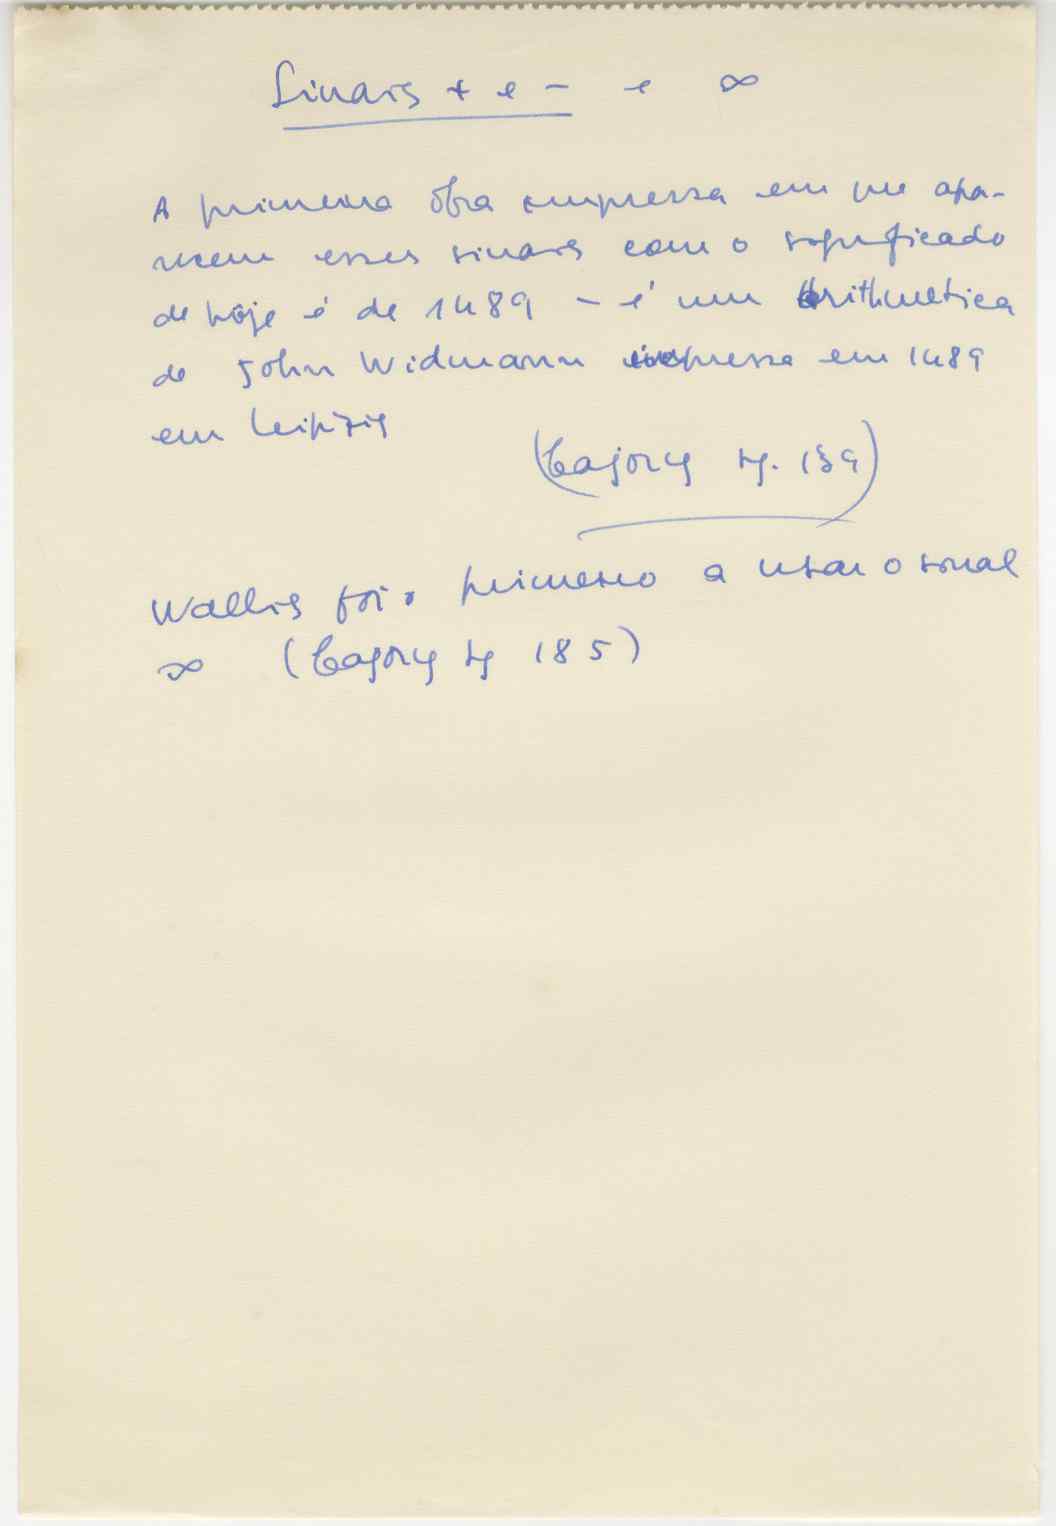 Sinais + e - e ∞
A primeira obra impressa em que apa-
recem esses sinais com o significado
de hoje é de 1489 - é um Arithmetica
de John Widmann impressa em 1489
em Leipzig
(Cajory pg. 139)
Wallis foi o primeiro a usar o sinal
∞ (Cajory pg 185)